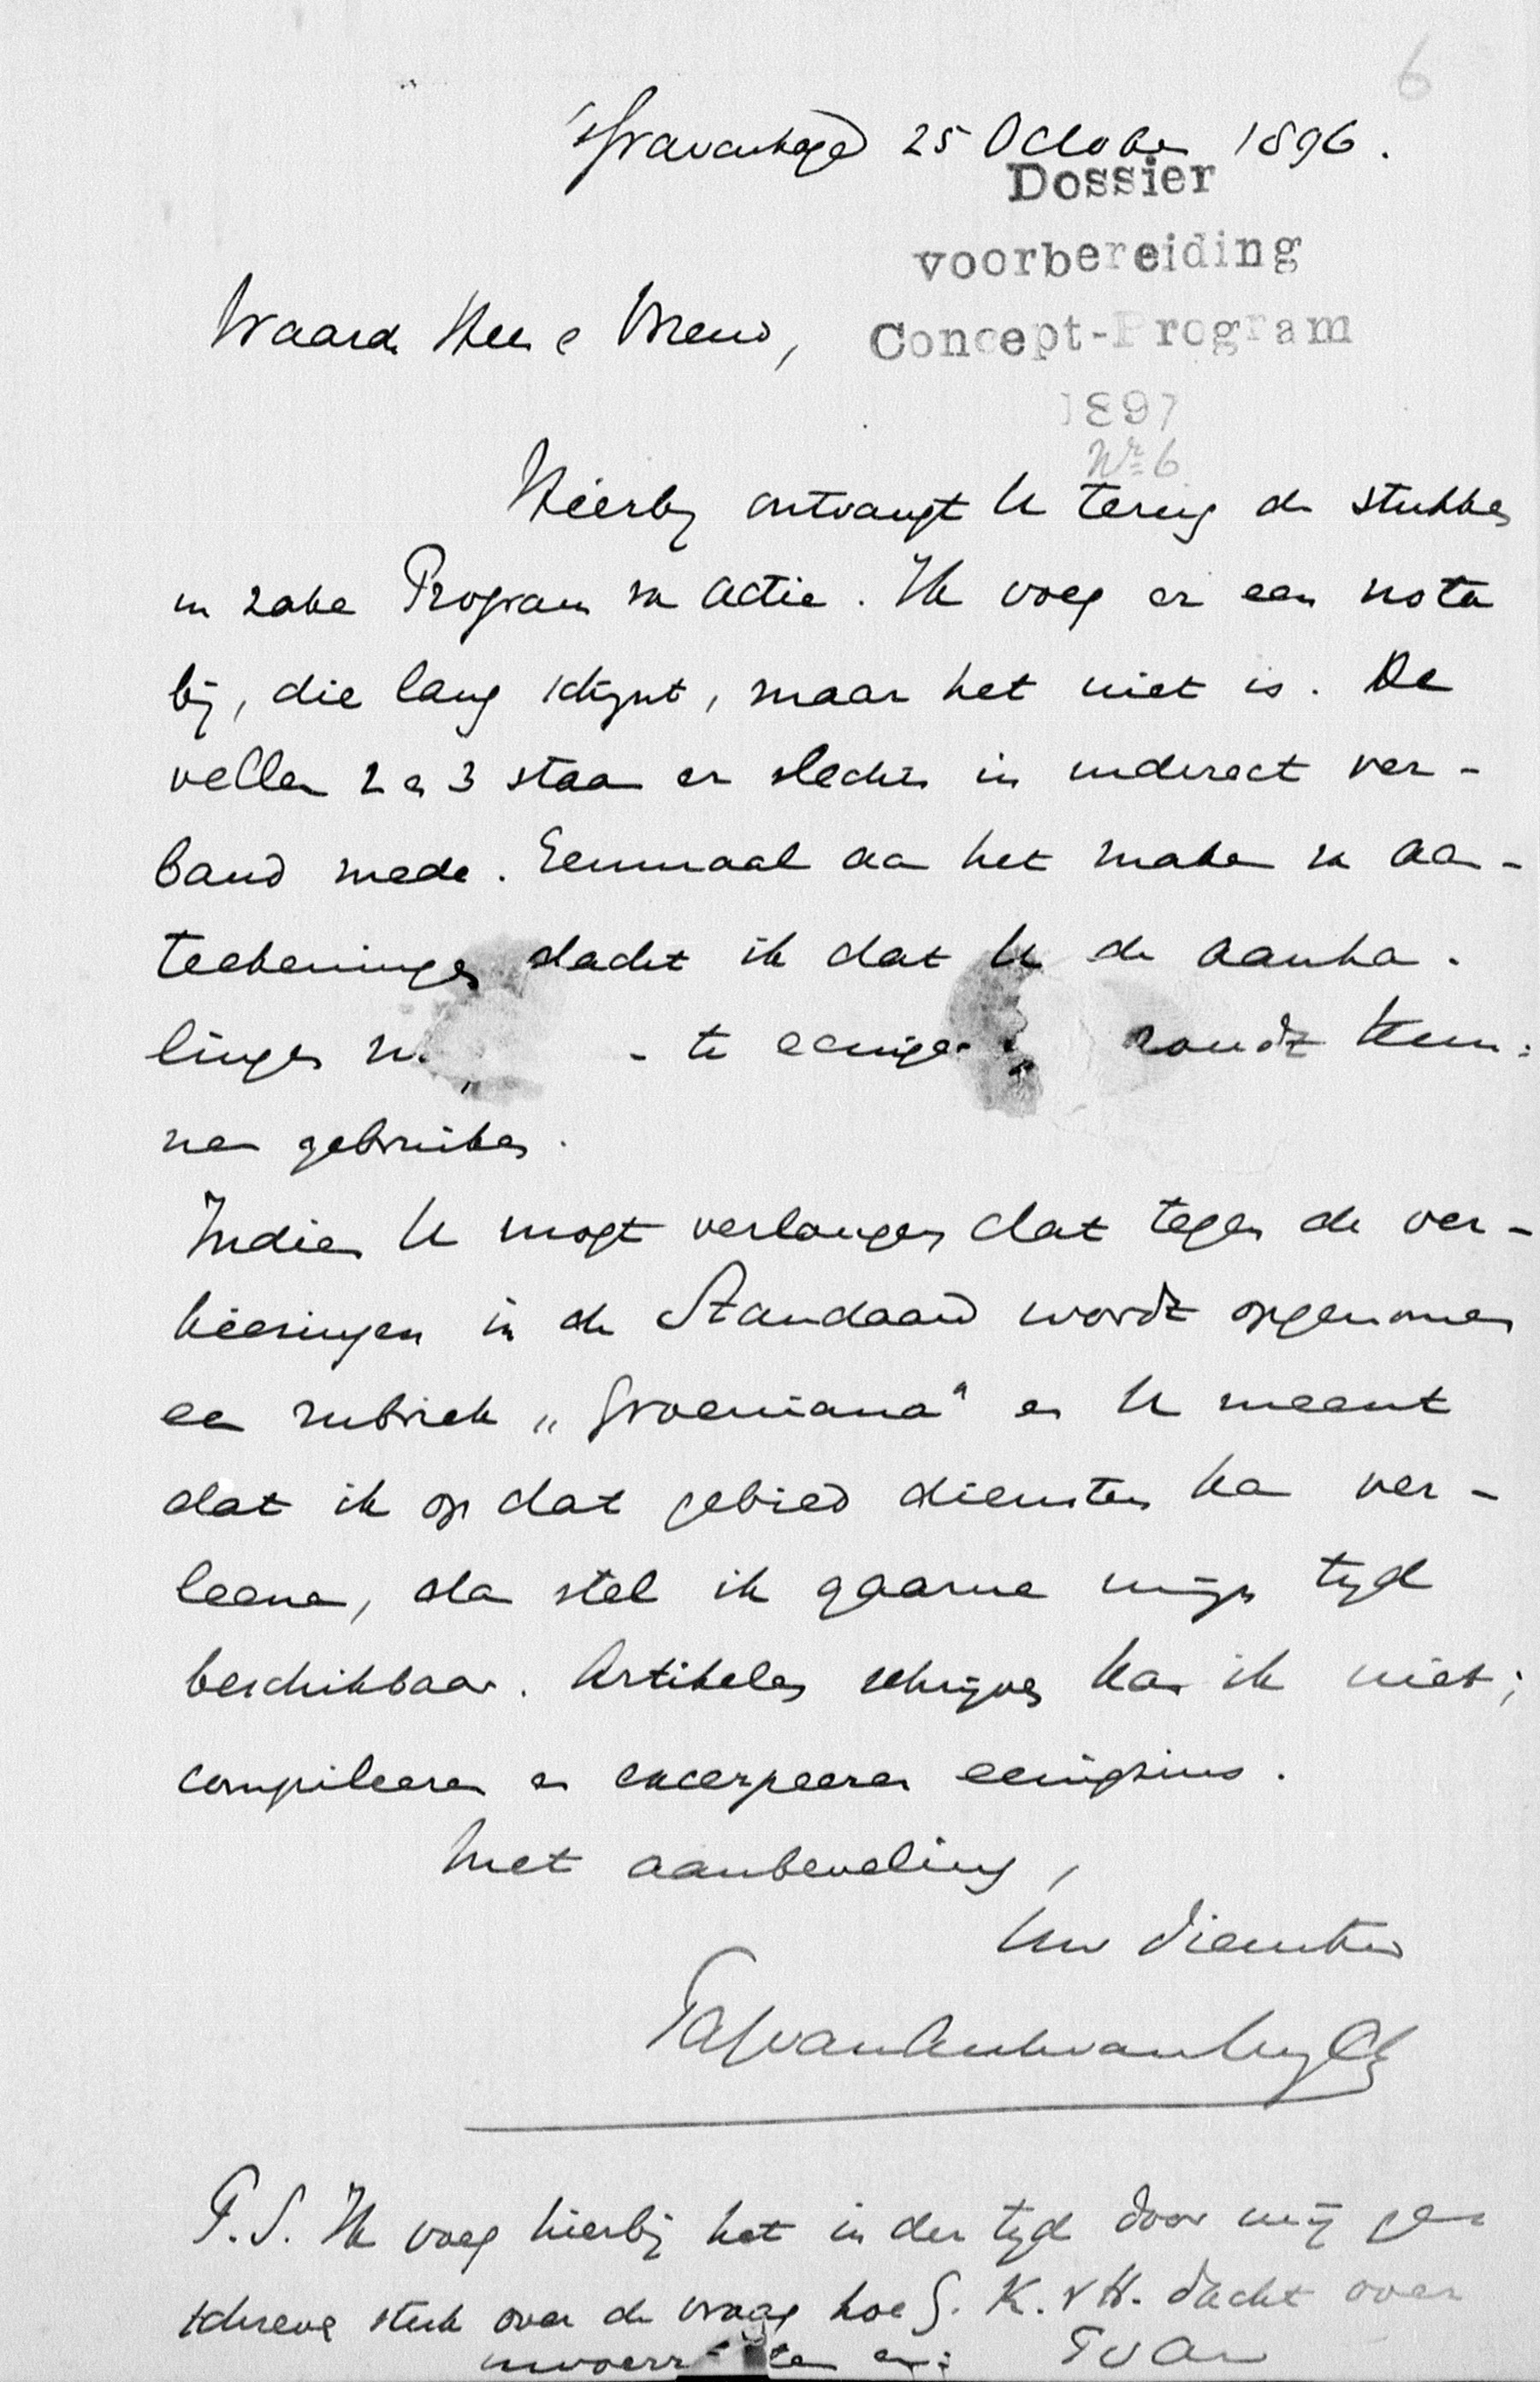 6
'sGravenhage 25 October 1896.
Dossier
voorbereiding
Waarde Heer en Vriend,
Concept-Program
1897
Nr 6
Hierbij ontvangt U terug de stukken
in zake Program van Actie. Ik voeg er een nota
bij, die lang schijnt, maar het niet is. De
vellen 2 en 3 staan er slechts in indirect ver-
band mede. Eenmaal aan het maken van aan-
teekeningen dacht ik dat U de aanha-
lingen te zoudt kun-
nen gebruiken.
Indien U mogt verlangen dat tegen de ver-
kiezingen in de Standaard wordt opgenomen
een rubriek „Groeniana" en U meent
dat ik op dat gebied diensten kan ver-
leenen, dan stel ik gaarne mijn tijd
beschikbaar. Artikelen schrijven kan ik niet;
compileeren en excerpeeren eenigszins.
Met aanbeveling,
Uw
P.S. Ik voeg hierbij het in der tijd door mij ge-
schreven stuk over de vraag hoe G. K. v H. dacht over
TvA